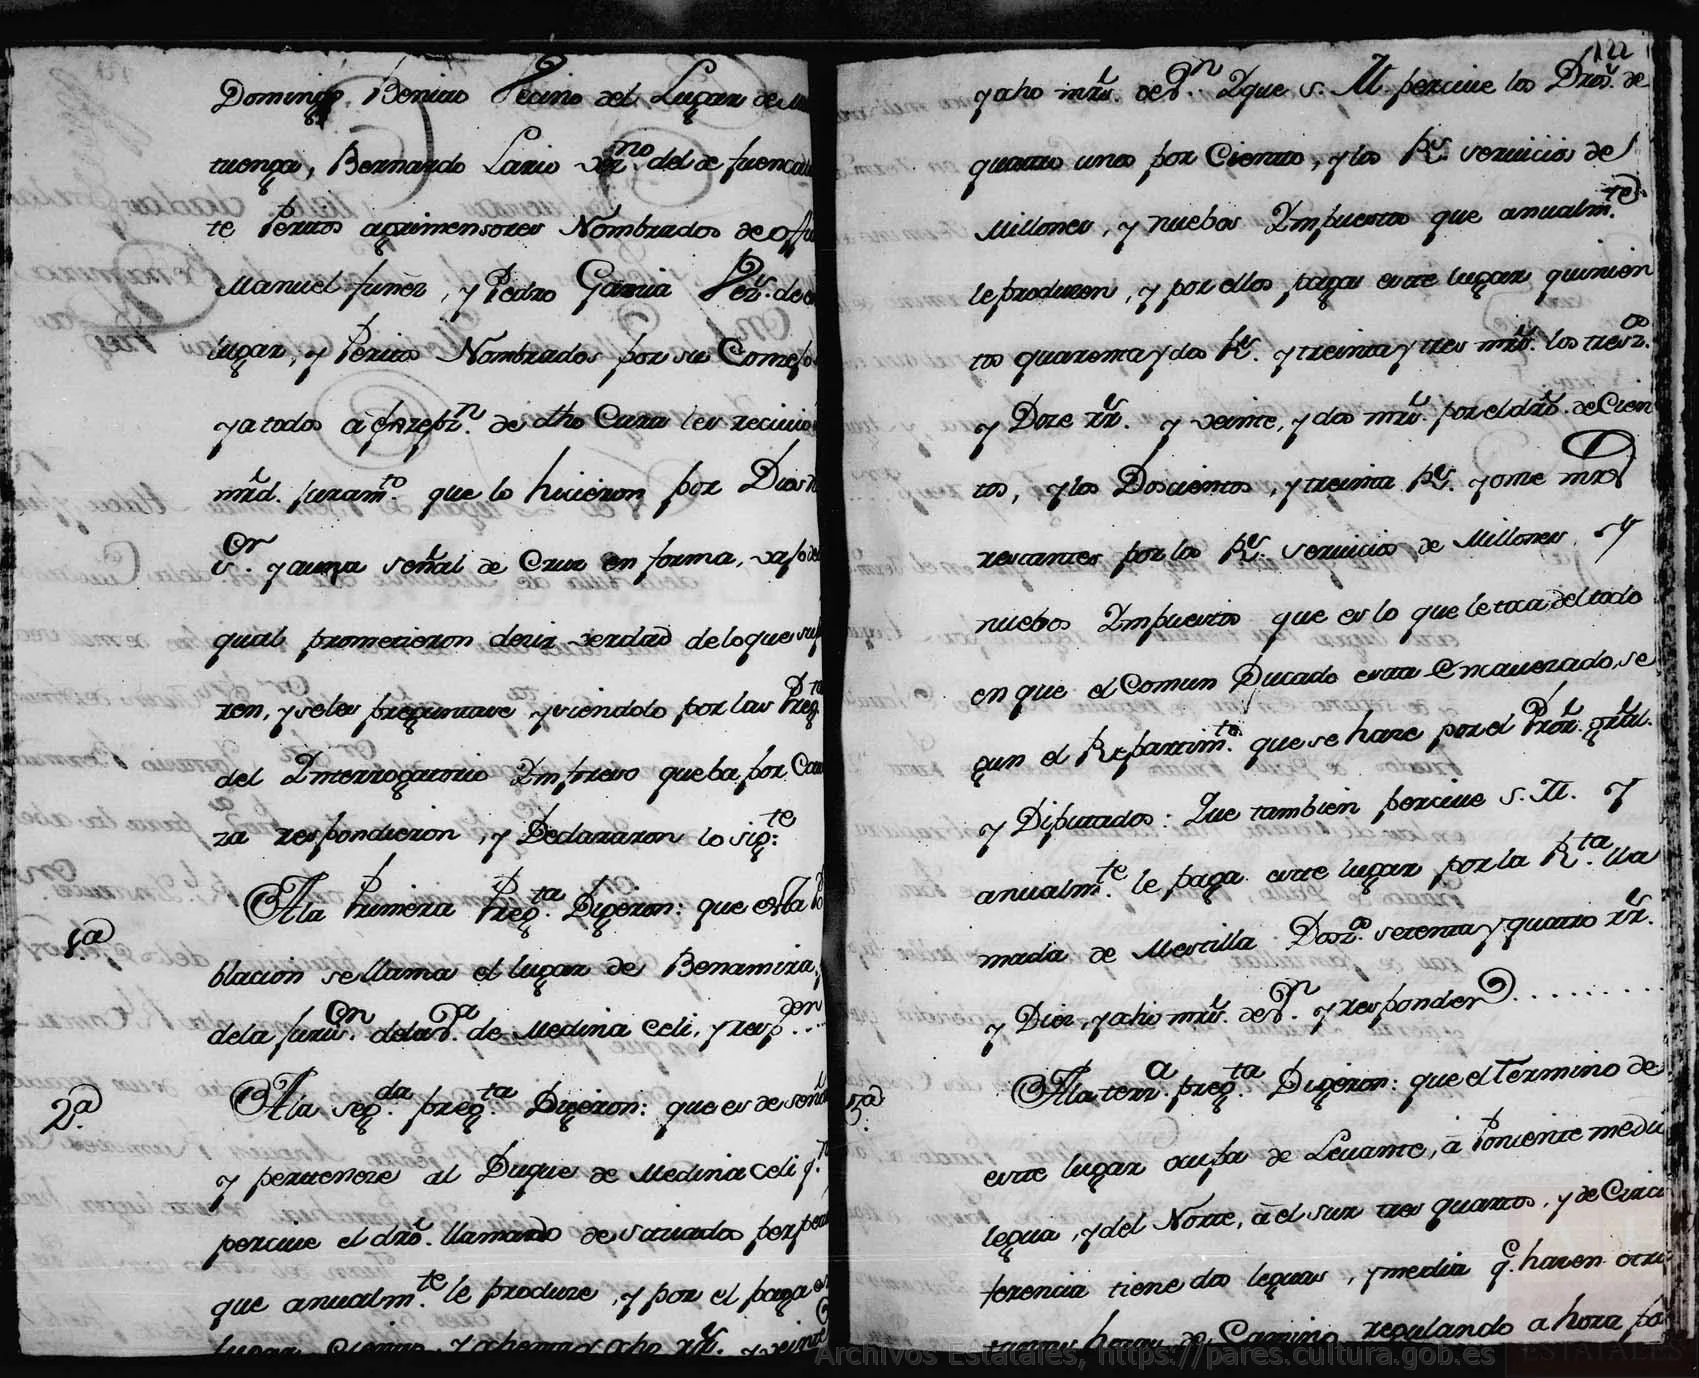 Domingo Benito Vecino del Lugar de
tuenga, Bernardo Lario vez.no del de fuenca
te Peritos agrimensores Nombrados de offi
Manuel funez, y Pedro Garcia Vez.s de
lugar, y Peritos Nombrados por su Conzejo
y a todos à prezpz.n de dho Cura les recivio
mrd. juram.to que lo hicieron por Dios
Sr. y a una señal de Cruz en forma, vajo de
qual prometieron decir verdad de lo que sup
ren, y se les preguntase, y siendolo por las Preg
del Interrogatorio Impreso que ba por Cave
za respondieron, y Declararon lo sig.te
1.a
A la Primera Preg.ta Digeron: que esta Po
blacion se llama el lugar de Benamira,
de la Juris.on de la V.a de Medina Celi, y resp.den
2.a
A la seg.da preg.ta Digeron: que es de señ
y pertenece al Duque de Medina Celi q.n
percive el dro. llamado de situados perpet
que anualm.te le produze, y por el paga es
lugar Ciento, y ochenta y ocho rr.s y veinte
122
y ocho mrs. de V.n Que S. M. percive los Dros. de
quatro unos por Ciento, y los R.s servicios de
Millones, y nuebos Impuestos que anualm.te
le producen, y por ellos paga este lugar quinien
tos quarenta y dos R.s y treinta y tres mrs. los tresz.os
y Doze rr.s y veinte, y dos mrs. por el dro. de Cien
tos, y los Doscientos, y treinta R.s y onze mrs
restantes por los R.s servicios de Millones y
nuebos Impuestos que es lo que le toca del todo
en que el Comun Ducado esta Encavezado, se
gun el Repartim.to que se haze por el Pror. gral.
y Diputados: Que tambien percive S. M. y
anualm.te le paga este lugar por la R.ta lla
mada de Mertilla Dosz.os setenta y quatro rr.s
y Diez, y ocho mrs. de V.n y responden
3.a
A la terz.a preg.ta Digeron: que el Termino de
este lugar ocupa de Levante, à Poniente media
legua, y del Norte, à el sur tres quartos, y de Circu
ferencia tiene dos leguas, y media q.e hacen otra
tantas horas de Camino regulando a hora po
Archivos Estatales, https://pares.cultura.gob.es
ESTATALES